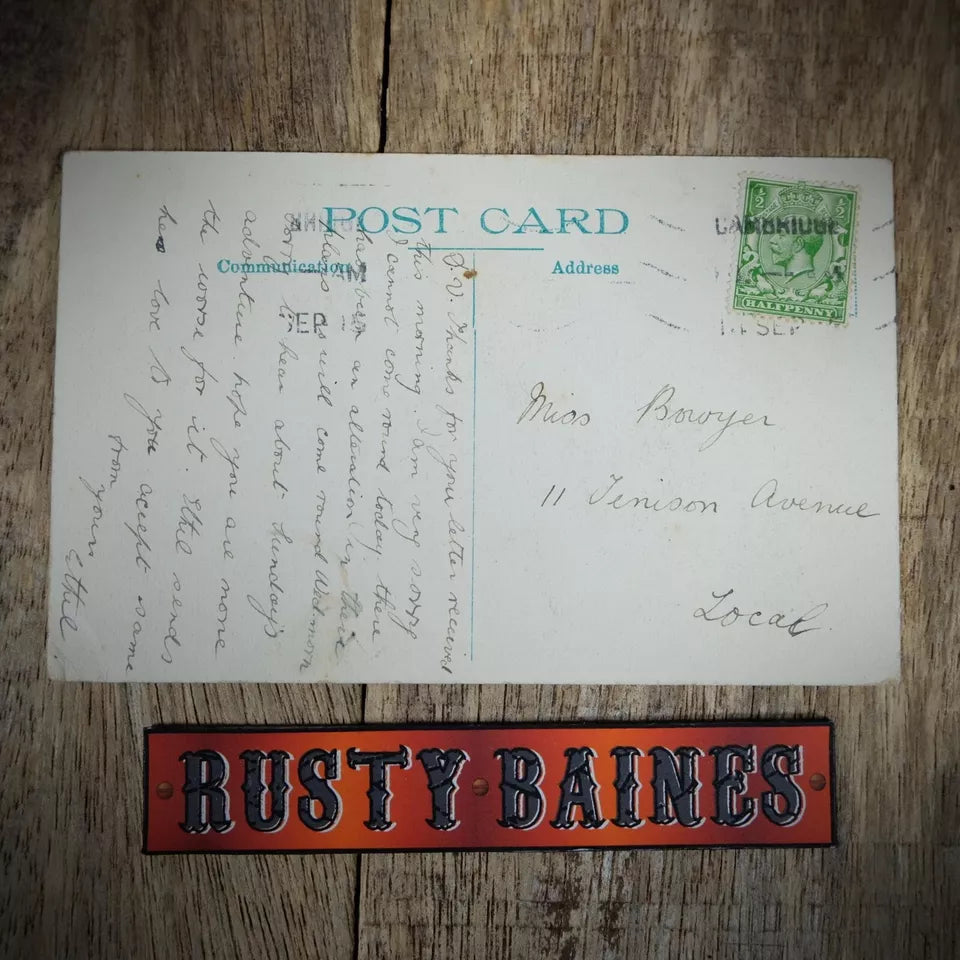 POST CARD
Communication
Address
Thanks for you letter received
this morning. I am very sorry
I cannot come round today, there
has been an in
plans will come round Wed morn
to hear about Sunday's
adventure. hope you are none
the worse for it. Ethel sends
her love to you accept same
from yours Ethel
CAMBRIDGE
AM
SEP
½ ½
HALFPENNY
SEP
Miss Bowyer
11 Tenison Avenue
Local.
RUSTY BAINES